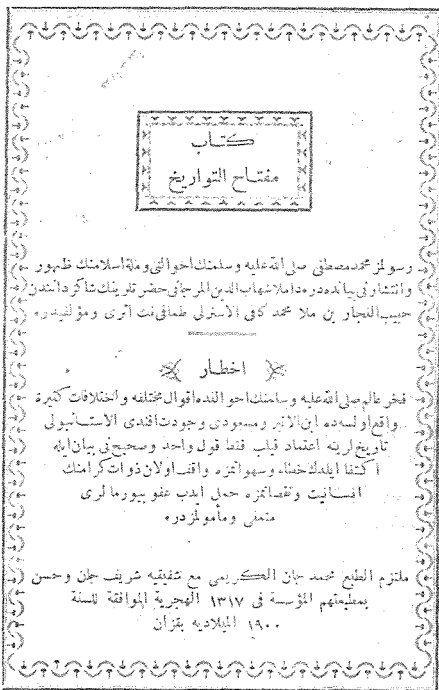 كتاب
مفتاح التواريخ
رسولمز محمد مصطفى صلى الله عليه وسلمنك احوالنى وملة اسلامنك ظهور
وانتشارنى بيانده دره داملا شهاب الدين المرجانى حضرتلرينك شاكردانندن
حبيب النجار بن ملا محمد كافى الاسترلى طماقى نت اثرى ومؤلفيدره
اخطار
فخر عالم صلى الله عليه وسلمنك احوالنده اقوال مختلفه واختلافات كثيرة
واقع اولسه ده ابن الاثير ومسعودى وجودت افندى الاستانبولى
تاريخلرينه اعتماد قيلب فقط قول واحد وصحيحنى بيان ايله
اكتفا ايلدك خطاء وسهوا تمزه واقف اولان ذوات كرامنك
انسانيت ونقصانمزه حمل ايدب عفو بيورمالرى
متمنى ومأمولمزدره
ملتزم الطبع محمد جان الكريمى مع شقيقيه شريف جان وحسن
بمطبعتهم المؤسسة فى ١٣١٧ الهجرية الموافقة للسنة
١٩٠٠ الميلاديه بقزان